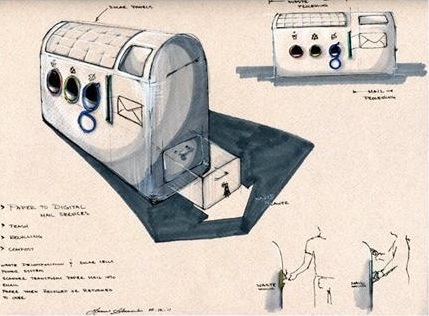 SOLAR PANELS
WASTE
PROCESSING
MAIL
PROCESSING
> PAPER TO DIGITAL
MAIL SERVICES
> TRASH
> RECYCLING
> COMPOST
WASTE DECOMPOSITION & SOLAR CELLS
POWER SYSTEM
SCANNER TRANSFORM PAPER MAIL INTO
EMAIL
PAPER MAIL RECYCLED OR RETURNED
TO USER
WASTE
MAIL